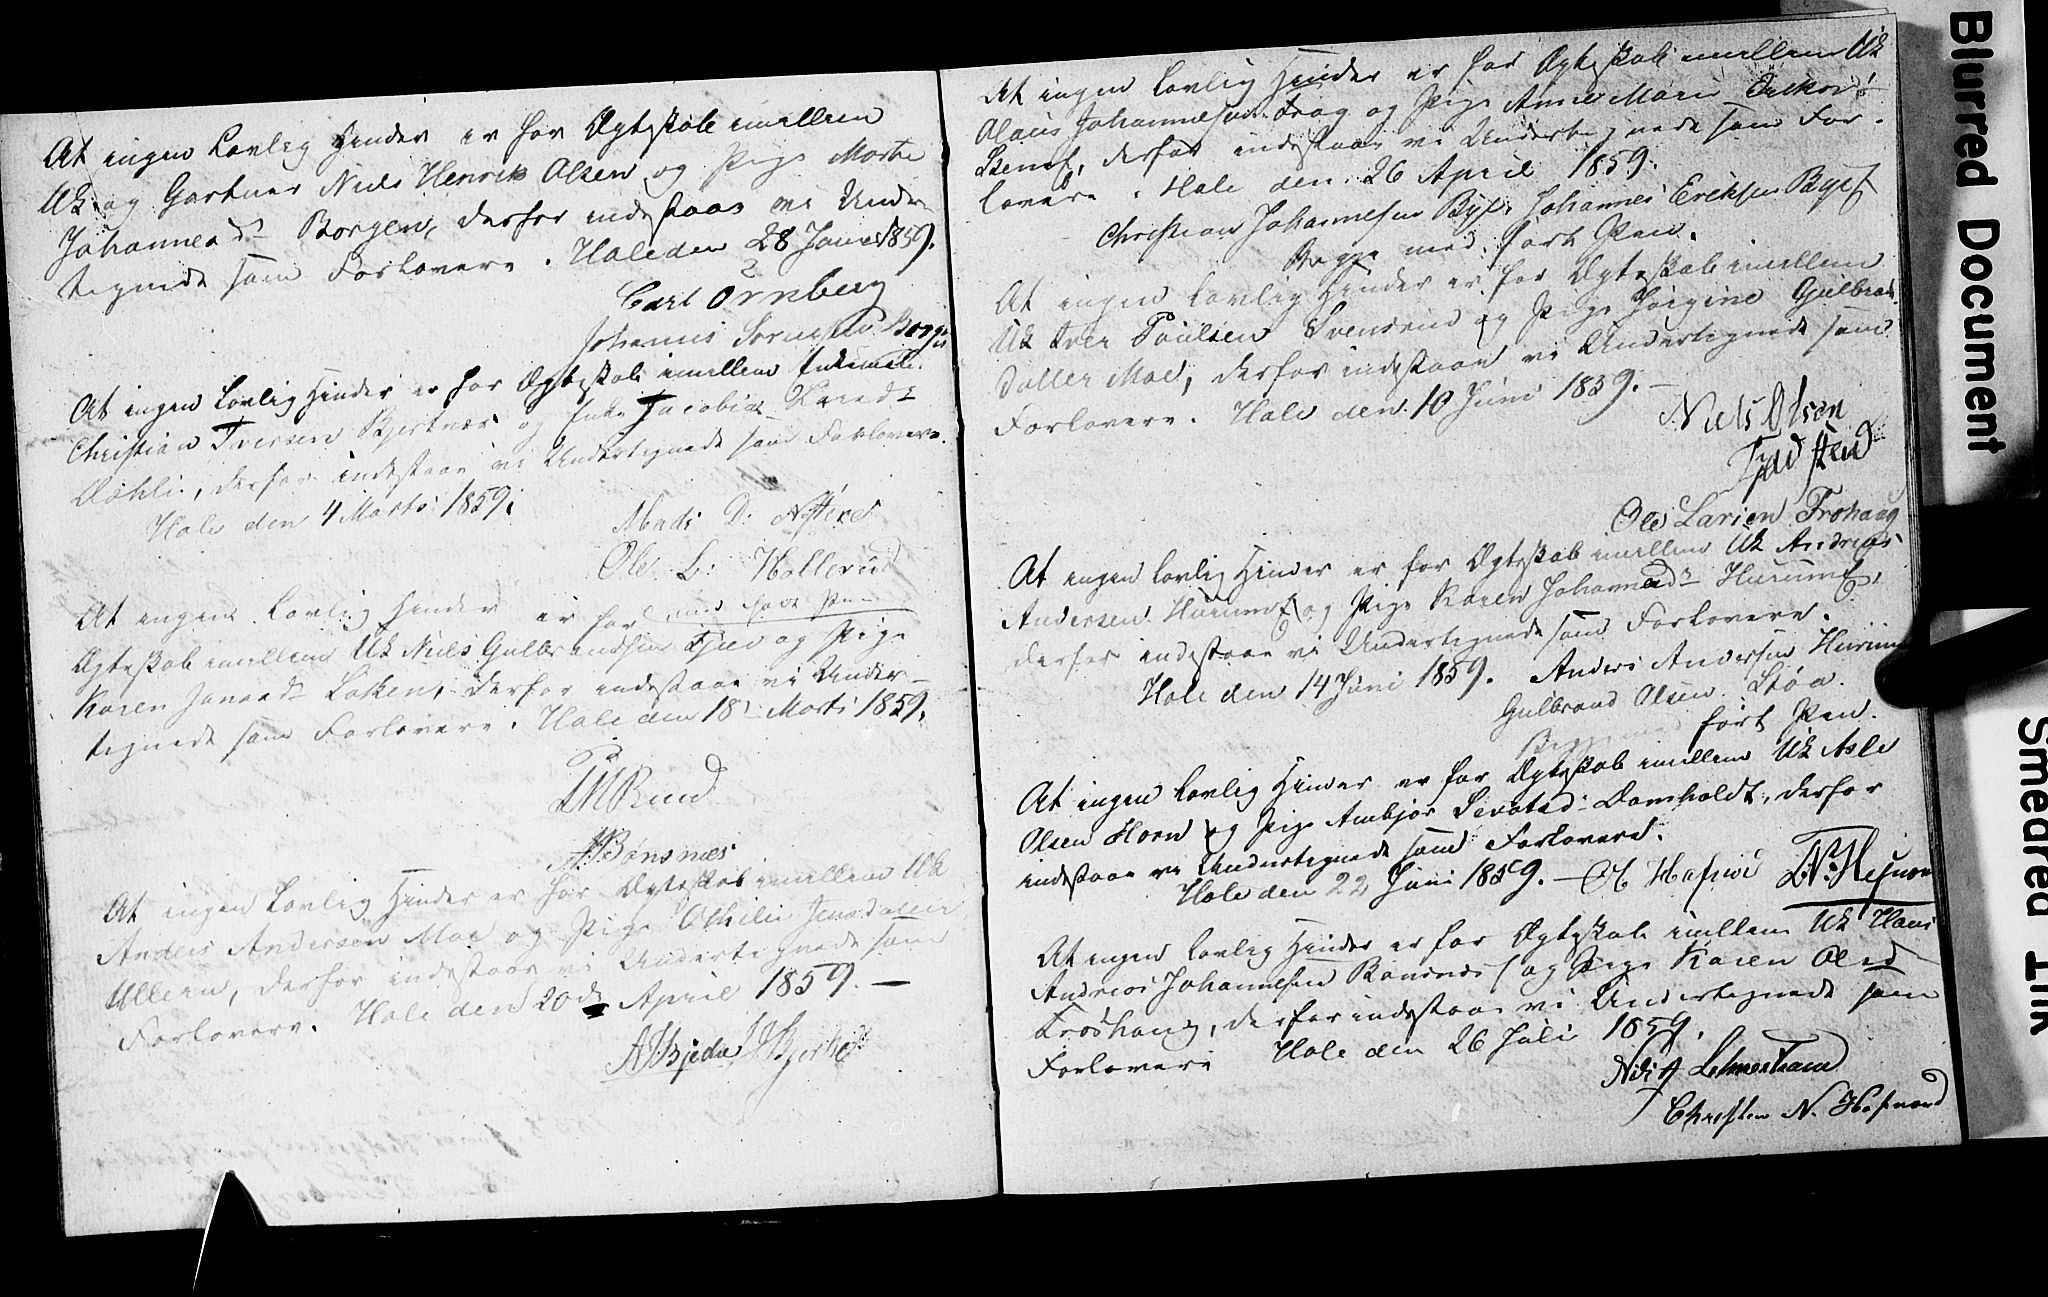 At ingen Lovlig Hinder er for Ægteskab imellem
Uk og Gartner Niels Henrik Olsen og Pige Marthe
Johannesd. Borgen, derfor indestaar vi Under-
tegnede som Forlovere. Hole den 28 Janu 1859.
Carl Ornberg
Johannis Borgen
At ingen Lovlig Hinder er for Ægteskab imellem Enkemand
Christian Iversen Bjertnæs og Enke Jacobia
Dæhli, derfor indestaar vi Undertegnede som Forlovere.
Hole den 4 Marts 1859.
Mads D:
Ole L: Hollerud
med ført Pen
At ingen Lovlig Hinder er for
Ægteskab imellem Uk Niels Gulbrandsen og Pige
Karen Løken, derfor indestaar vi Under-
tegnede som Forlovere. Hole den 18 Marts 1859.
Bønsnæs
At ingen Lovlig Hinder er for Ægteskab imellem Uk
Anders Andersen Moe og Pige Othilie Jensdatter
Ullern, derfor indestaar vi Undertegnede som
Forlovere. Hole den 20de April 1859. —
At ingen Lovlig Hinder er for Ægteskab imellem Uk
Olaus Johannesen og Pige Anne Marie
derfor indestaar vi Undertegnede som For-
lovere. Hole den 26 April 1859.
Christian Johannesen Johannes Eriksen
Begge med ført Pen.
At ingen Lovlig Hinder er for Ægteskab imellem
Uk Iver Paulsen Svensrud og Pige Jørgine Gulbrands
datter Moe, derfor indestaar vi Undertegnede som
Forlovere. Hole den 10 Juni 1859. —
Niels Olsen
Ole Larsen Frøhaug
At ingen Lovlig Hinder er for Ægteskab imellem Uk Andreas
Andersen og Pige Karen Johannesd.
derfor indestaar vi Undertegnede som Forlovere.
Hole den 14 Juni 1859. Anders Andersen
Gulbrand Olsen Støa.
Begge med ført Pen.
At ingen Lovlig Hinder er for Ægteskab imellem Uk Asle
Olsen Horn og Pige Ambjør Domholdt, derfor
indestaar vi Undertegnede som Forlovere.
Hole den 22 Juni 1859. —
At ingen Lovlig Hinder er for Ægteskab imellem Uk Hans
Andreas Johannesen Bønsnæs og Pige Karen Olesd
Frøshaug, derfor indestaar vi Undertegnede som
Forlovere Hole den 26 Juli 1859.
Christen N.
Blurred Document
Smeared Ink